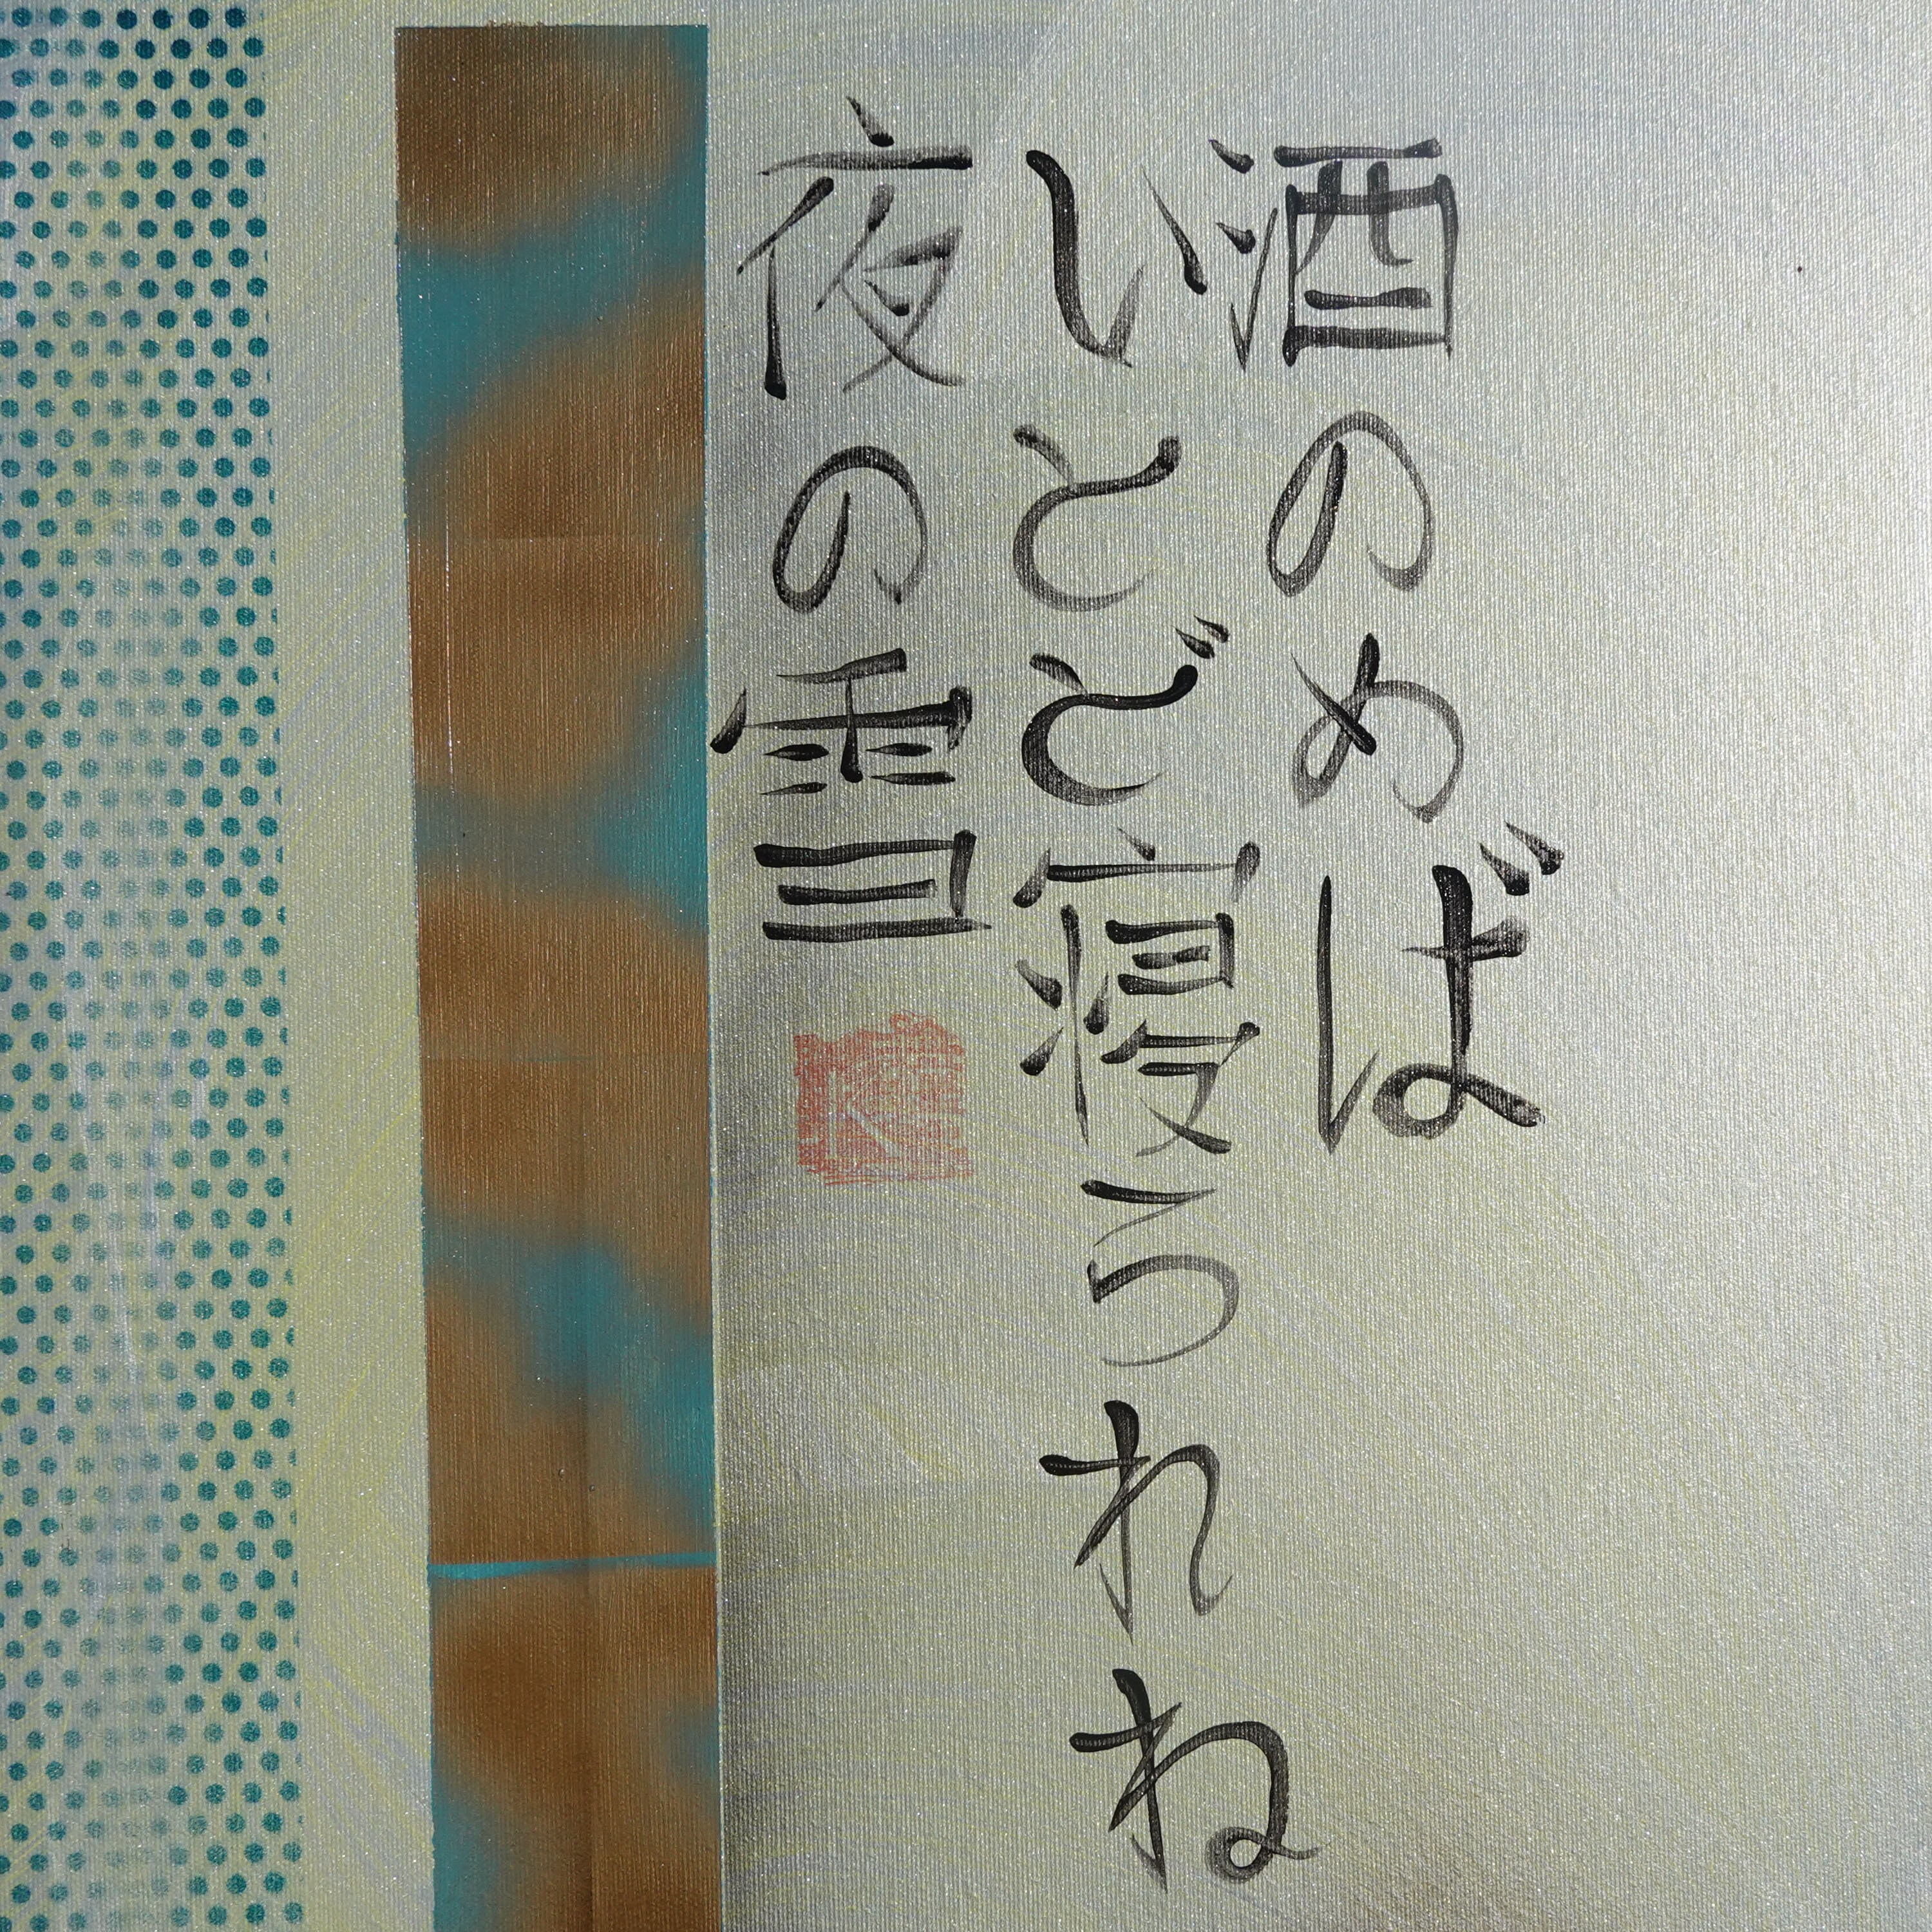 酒のめば
いとど寝られね
夜の雪
K